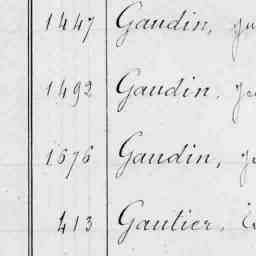 1447 Gaudin,
1492 Gaudin,
1676 Gaudin,
413 Gautier,